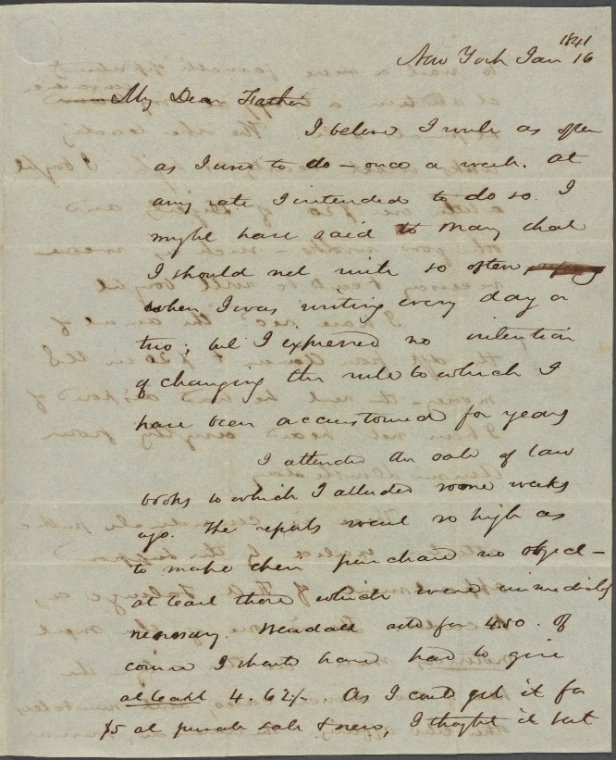 1841
New York Jan 16
My Dear Father
I believe I write as often
as I used to do – once a week. At
any rate I intended to do so. I
might have said to May that
I should not write so often
when I was writing every day or
two; but I expressed no intention
of changing the rule to which I
have been accustomed for years
I attended the sale of law
books to which I alluded some weeks
ago. The reports went so high as
to make their purchase no object –
at least those which were immediately
necessary. Wendall sold for 4.50. Of
course I should have had to give
at least 4.62½. As I could get it for
$5 at private sale & new, I thought it but